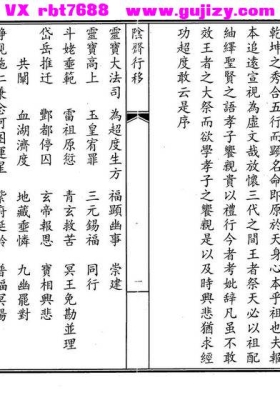 VX rbt7688 www.gujizy.com
乾坤之秀合五行而顯名命即原於天身心本乎祖也夫報
本追遠宣視為虛文哉故懷三代之間王者祭天必以祖配
紬繹聖賢之語孝子饗親貴以禮行今者考妣辭凡雖不敢
效王者之大祭而欲學孝子之饗親是以及時興悲猶求經
功超度敢云是序
陰齋行移
一
靈寶大法司 為超度生方 福顯幽事 崇建
靈寶高上 玉皇宥罪 三元錫福 同行
斗姥垂範 雷祖原愆 青玄救苦 冥王免勘並理
岱岳推遷 酆都停囚 玄帝報恩 寶相興悲
共闡 血湖濟度 地藏垂憐 九幽罷對